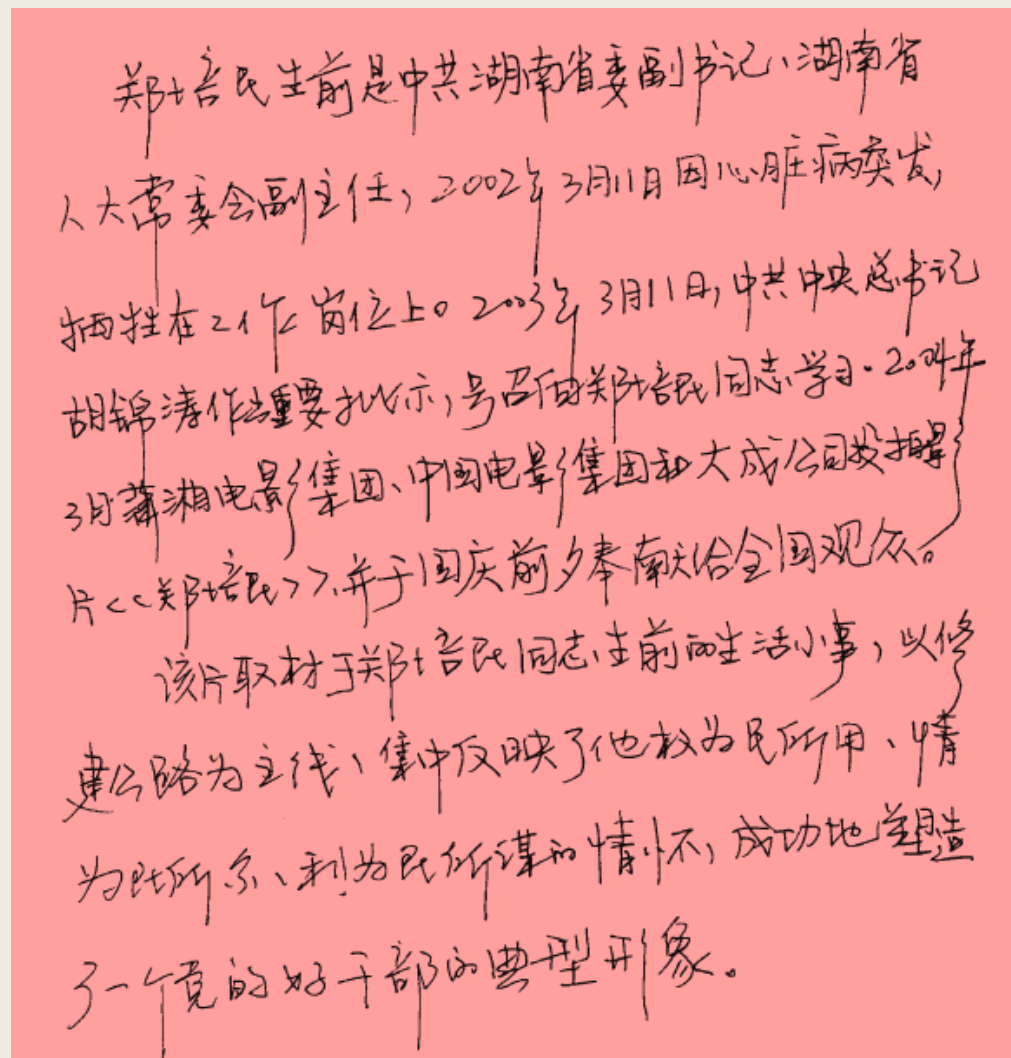 郑培民生前是中共湖南省委副书记、湖南省
人大常委会副主任，2002年3月11日因心脏病突发，
牺牲在工作岗位上。2003年3月11日，中共中央总书记
胡锦涛作出重要批示，号召向郑培民同志学习。2004年
3月潇湘电影集团、中国电影集团和大成公司投拍影
片<<郑培民>>，并于国庆前夕奉献给全国观众。
该片取材于郑培民同志生前的生活小事，以修
建公路为主线、集中反映了他权为民所用、情
为民所系、利为民所谋的情怀，成功地塑造
了一个党的好干部的典型形象。